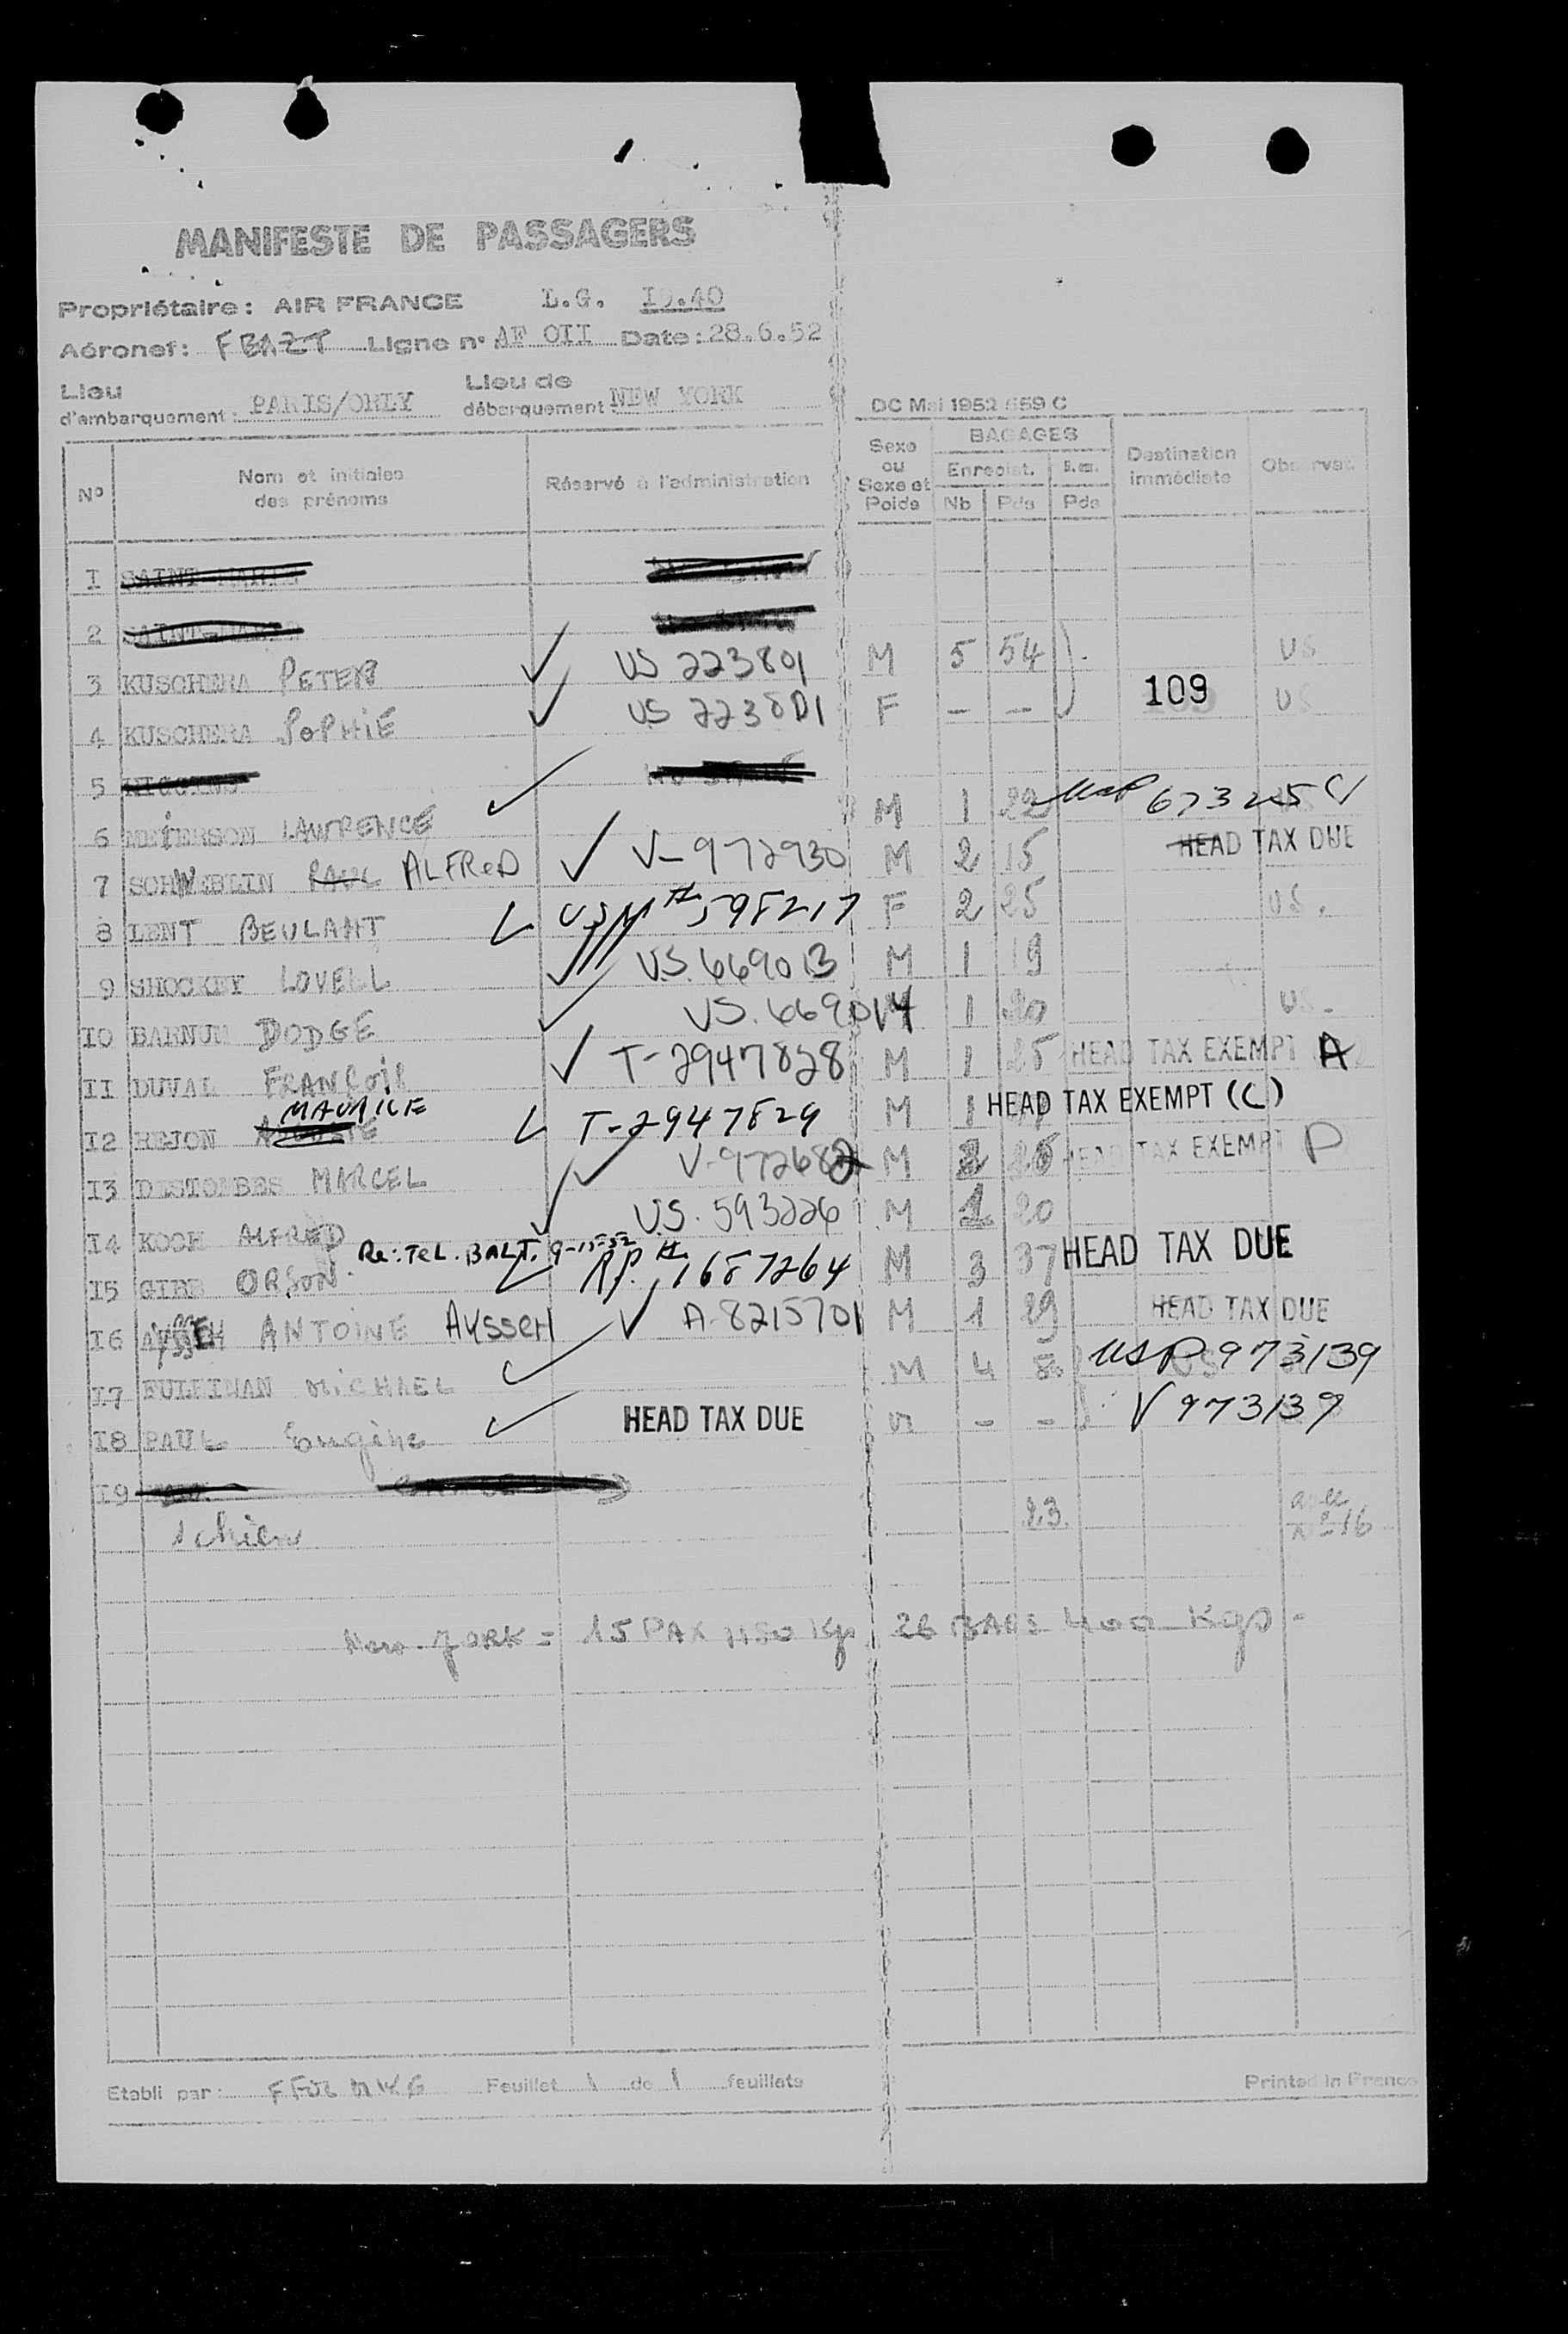 MANIFESTE DE PASSAGERS
Propriétaire: AIR FRANCE L.G.
Aéronef: FBAZT Ligne n° AF OII Date: 28.6.52
Lieu d'embarquement: PARIS/ORLY Lieu de débarquement: NEW YORK
DC Mai 1952 659 C
N° Nom et initiales des prénoms Réservé à l'administration Sexe ou Sexe et Poids BAGAGES Enregist. Nb Pds Pds Destination immédiate Observat.
I SAINT
2 SAINT
3 KUSCHERA PETER US 223801 M 5 54 US
4 KUSCHERA SOPHIE US 223801 F - - 109 US
5 HIGGINS
6 LAWRENCE M 1 22 USP 673225
7 SCHWEBLIN PAUL ALFReD V-972930 M 2 15 HEAD TAX DUE
8 LENT BEULAHT USPP# 598217 F 2 25 US.
9 SHOCKEY LOVELL US.669013 M 1 19
I0 BARNUM DODGE US.669014 1 20 US.
II DUVAL FRANÇOIS T-2947828 M 1 25 HEAD TAX EXEMPT A
I2 REJON MAURICE T-2947829 M 1 HEAD TAX EXEMPT (C)
I3 DESTOMBES MARCEL V-972682 M 2 26 HEAD TAX EXEMPT D
I4 KOCH ALFRED US.593226 M 1 20
I5 GIBB ORSON Re: TeL. BALT. 9-15-52 RP.# 1687264 M 3 37 HEAD TAX DUE
I6 ANTOINE AYSSEH A-8215701 M 1 29 HEAD TAX DUE
I7 MICHAEL M 4 USP 973139
I8 PAUL Eugène HEAD TAX DUE M - - V 973139
I9
1 chien 23. avec n° 16
New-YORK = 15 PAX Kgs 26 BAGS 400 Kgs -
Etabli par: Feuillet 1 de 1 feuillets
Printed in France